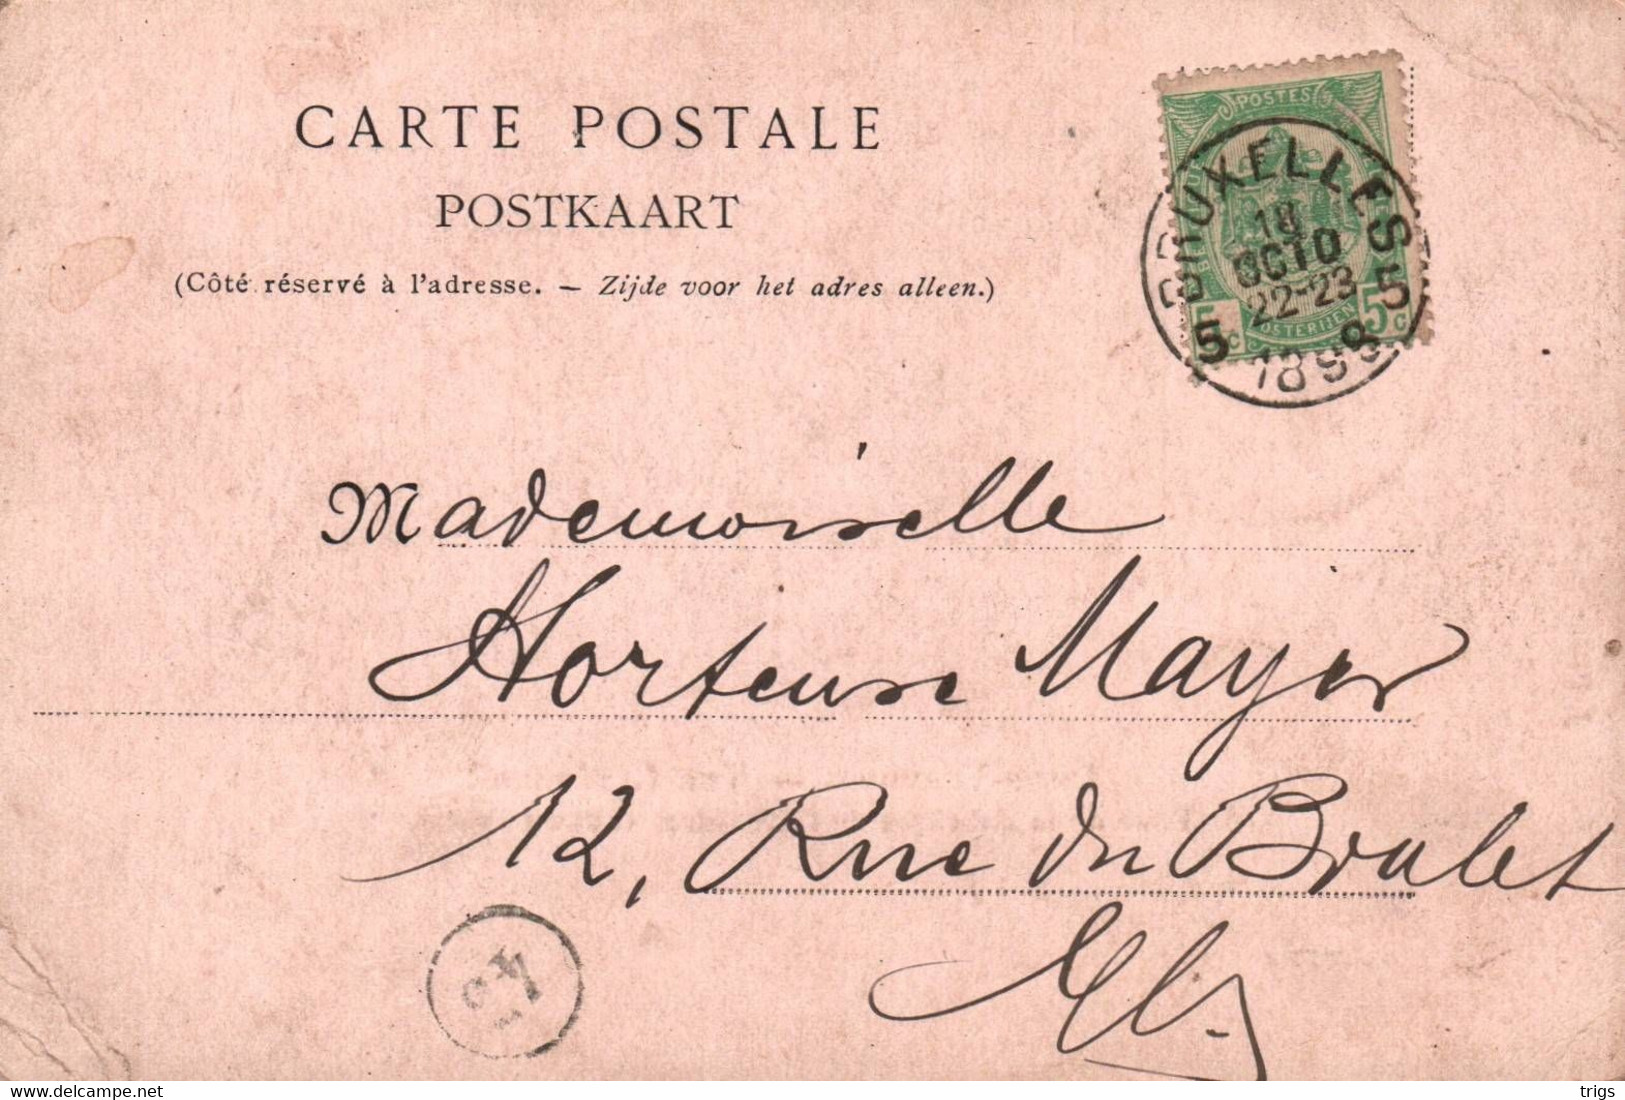 CARTE POSTALE
POSTKAART
(Côté réservé à l'adresse. — Zijde voor het adres alleen.)
POSTES
BRUXELLES
18
OCTO
22-23
5 5
1898
5c 5c
POSTERIJEN
Mademoiselle
Hortense Mayer
12, Rue du Brulet
trigs